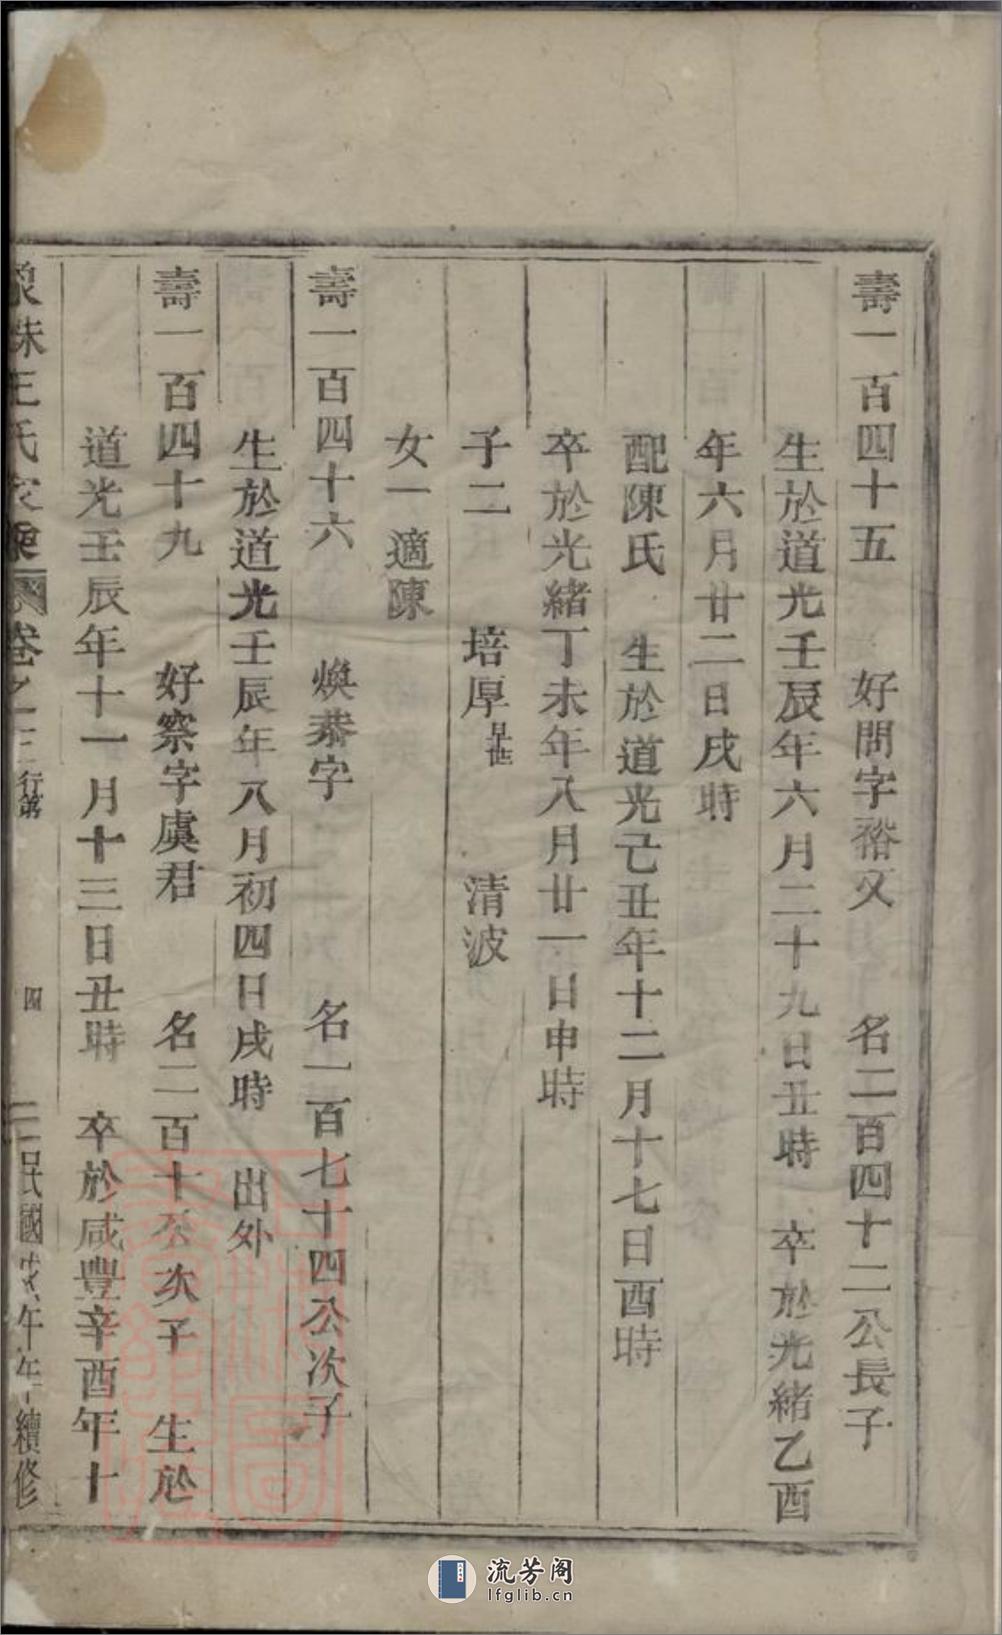 壽一百四十五 好問字裕文 名二百四十二公長子
生於道光壬辰年六月二十九日丑時 卒於光緒乙酉
年六月廿二日戌時
配陳氏 生於道光己丑年十二月十七日酉時
卒於光緒丁未年八月廿一日申時
子二 培厚早世 清波
女一適陳
壽一百四十六 煥恭字 名一百七十四公次子
生於道光壬辰年八月初四日戌時 出外
壽一百四十九 好察字虞君 名二百十公次子 生於
道光壬辰年十一月十三日丑時 卒於咸豐辛酉年十
王氏家乘 卷之三 行第 四 民國戊午年續修
流芳阁
lfglib.cn